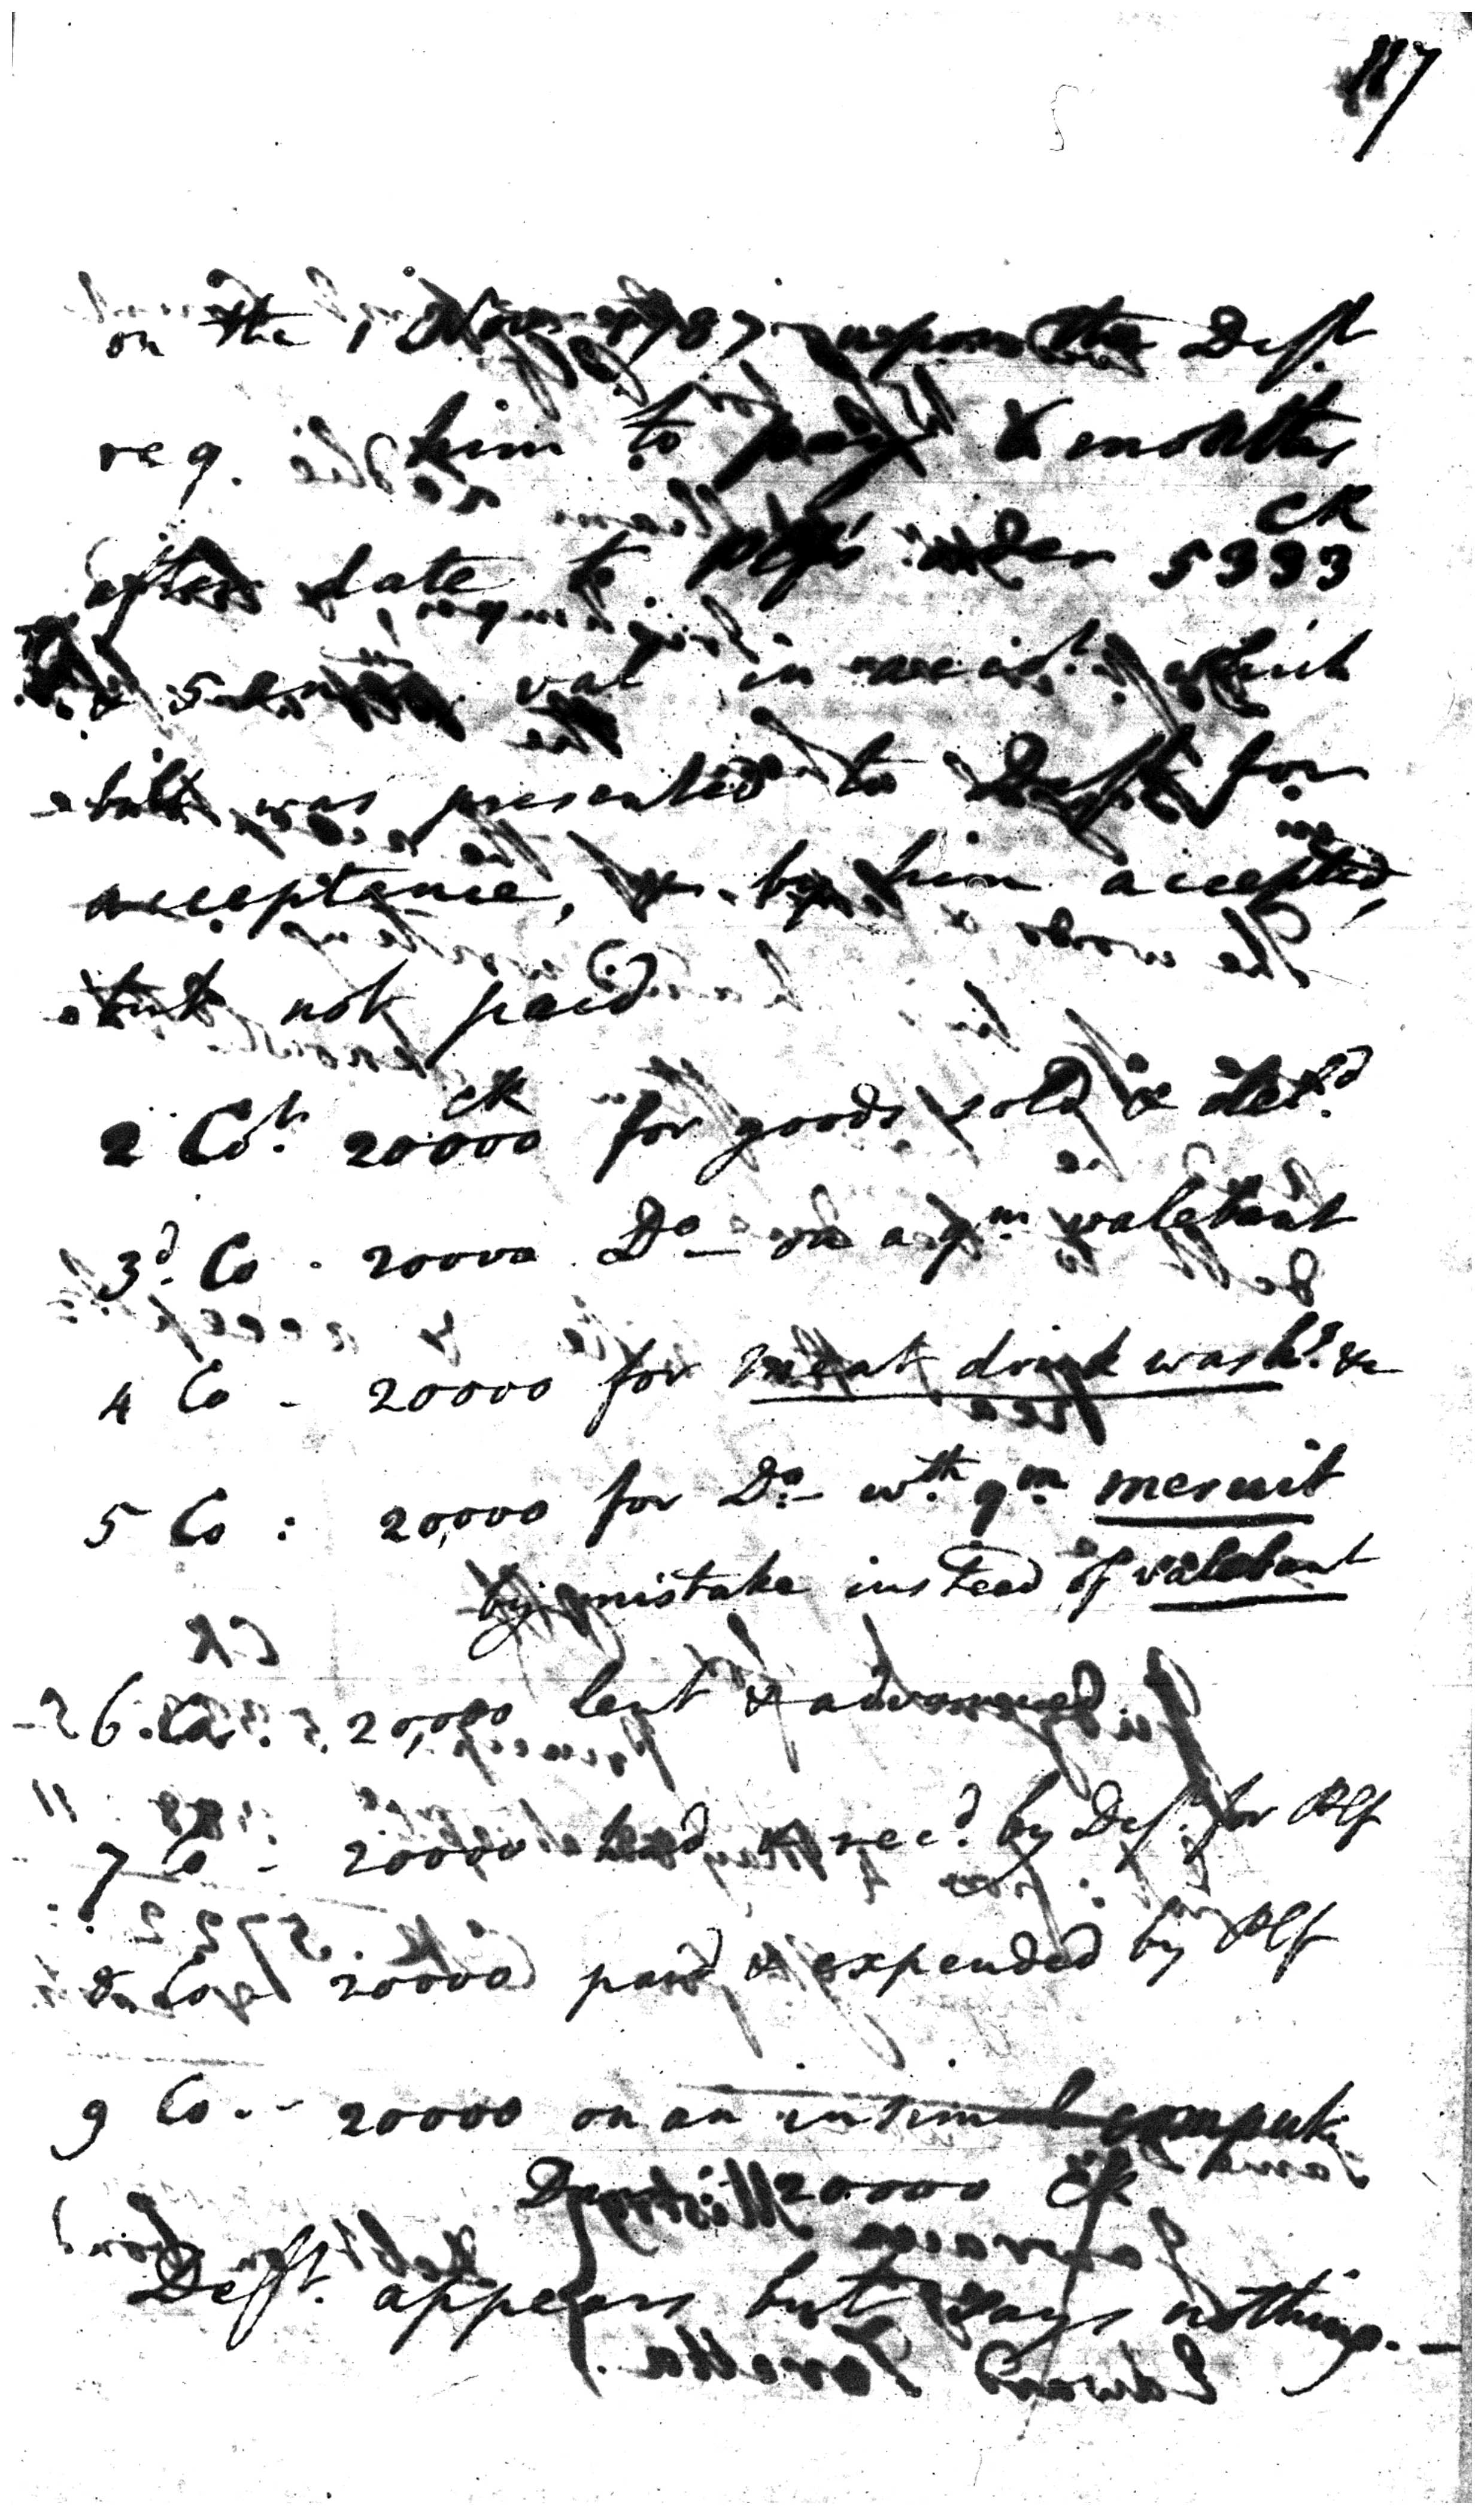 117
on the 1 Nov. 1787 upon the Deft.
req. him to pay 2 months
after date to Plfs order 5333
CR
& 5 val in acct. which
bill was presented to Deft for
acceptance, & by him accepted,
but not paid
2 Ct. 20000 CR for goods sold & del.d
3d. Co. 20000 Do on a qm valebant
4 Co - 20000 for meat drink washg. &c
5 Co : 20,000 for Do wth. qm meruit
by mistake instead of valebant
6. Co. 20,000 lent & advanced
7 Co - 20000 had & recd. by Deft. for Plf
8 Co 20000 paid & expended by Plf
9 Co. - 20000 on an insimul comput.
Dam 20000 CR
Deft. appears but says nothing. -